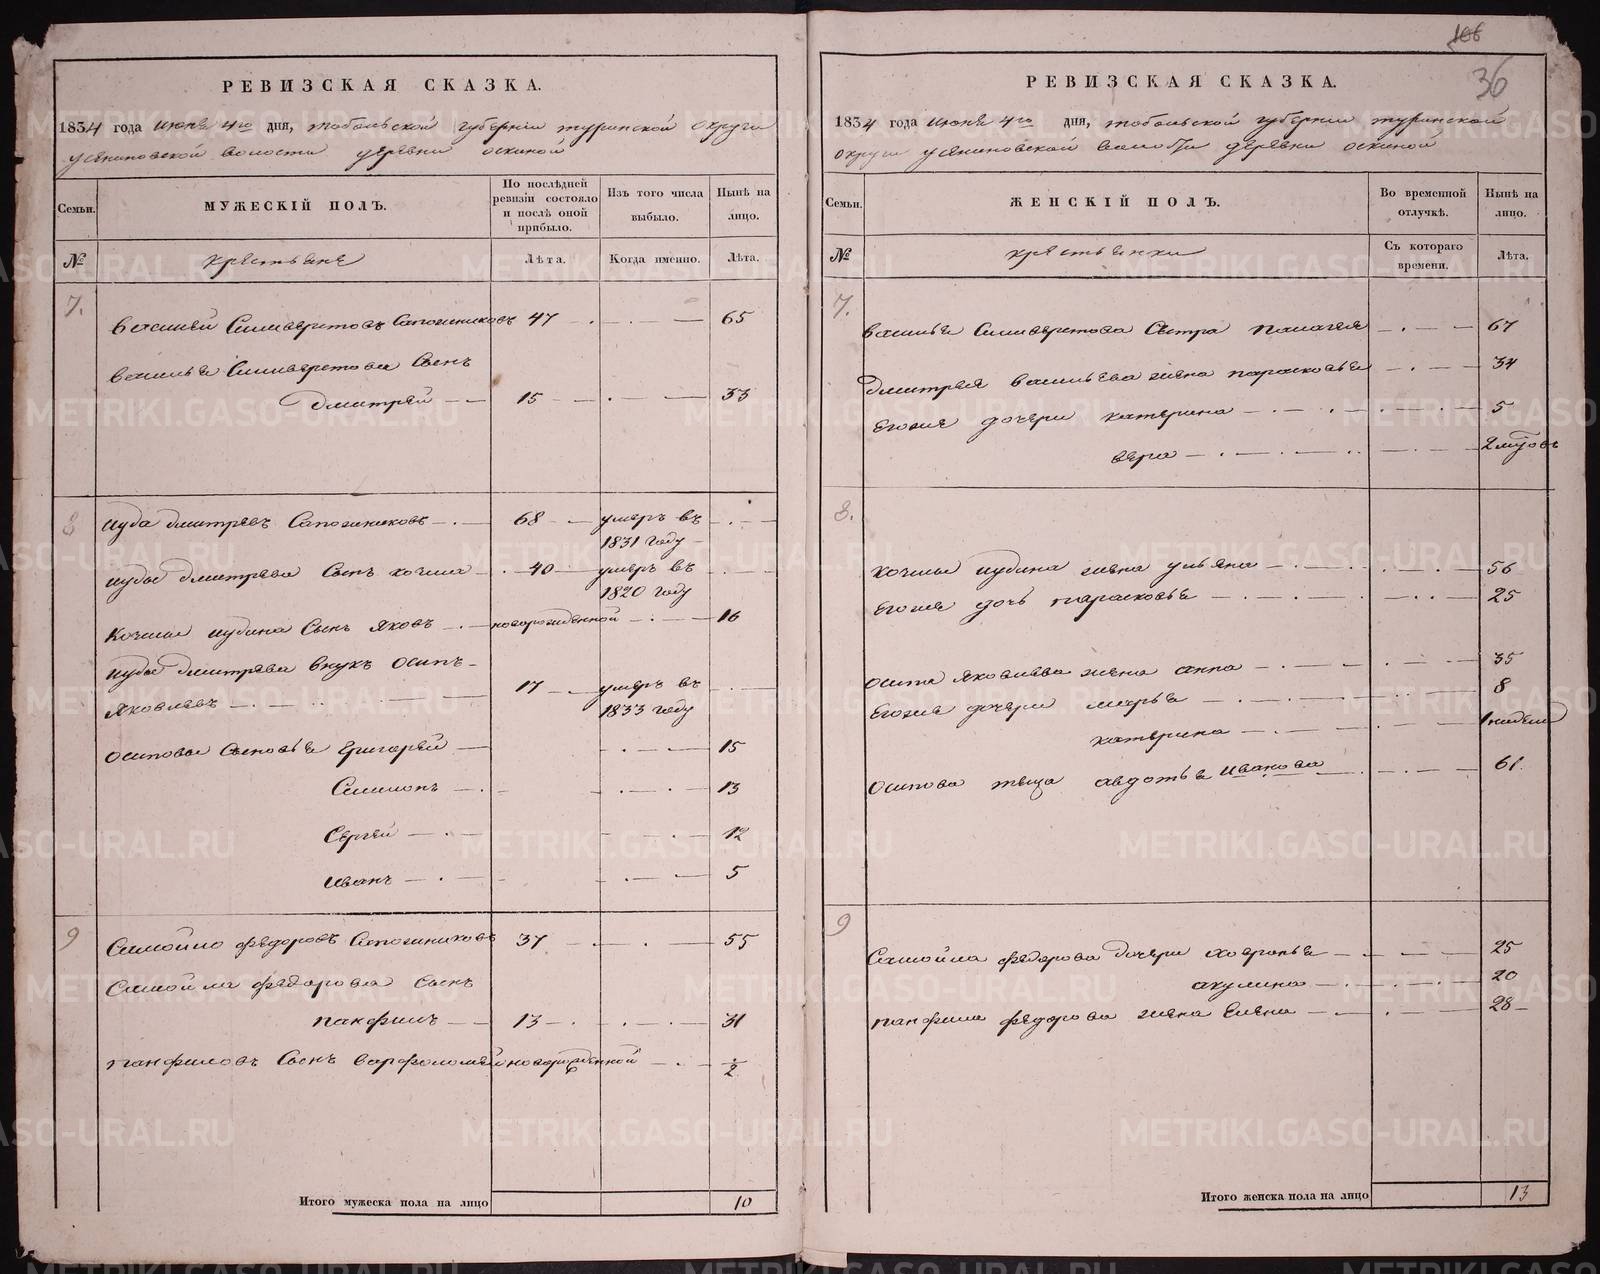 РЕВИЗСКАЯ СКАЗКА.
1834 года Июня 4го дня, тобольской губернiи туринской округи
усениновской волости деревни оскиной
Семьи. МУЖЕСКIЙ ПОЛЪ. По послѣдней ревизiи состояло и послѣ оной прибыло. Изъ того числа выбыло. Нынѣ на лицо.
№ крестьяне Лѣта. Когда именно. Лѣта.
7.
василей Силиверстовъ Сапожниковъ 47 65
василья Силиверстова Сынъ
дмитрей 15 33
8
иуда дмитревъ Сапожниковъ 68 умеръ въ
1831 году
иуды дмитрева Сынъ козма 40 умеръ въ
1820 году
Козмы иудина Сынъ яковъ новорожденной 16
иуды дмитрева внукъ осипъ
яковлевъ 17 умеръ въ
1833 году
осиповы Сыновья григорей 15
Симионъ 13
Сергей 12
иванъ 5
9
Самойло федоровъ Сапожниковъ 37 55
Самойла федорова Сынъ
панфилъ 13 31
панфиловъ Сынъ варфоломей новорожденной ½
Итого мужеска пола на лицо 10
106
36
РЕВИЗСКАЯ СКАЗКА.
1834 года Июня 4го дня, тобольской губернiи туринской
округи усениновской волости деревни оскиной
Семьи. ЖЕНСКIЙ ПОЛЪ. Во временной отлучкѣ. Нынѣ на лицо.
№ крестьянки Съ котораго времени. Лѣта.
7.
василья Силиверстова Сестра палагея 67
дмитрея васильева жена парасковья 34
Его же дочери катерина 5
вера 2
8.
козмы иудина жена ульяна 56
Его же дочь парасковья 25
осипа яковлева жена анна 35
Его же дочери марья 8
катерина 1 недели
осипова теща авдотья Иванова 61.
9
Самойла федорова дочери ховронья 25
акулина 20
панфила федорова жена Елена 28
Итого женска пола на лицо 13
METRIKI.GASO-URAL.RU